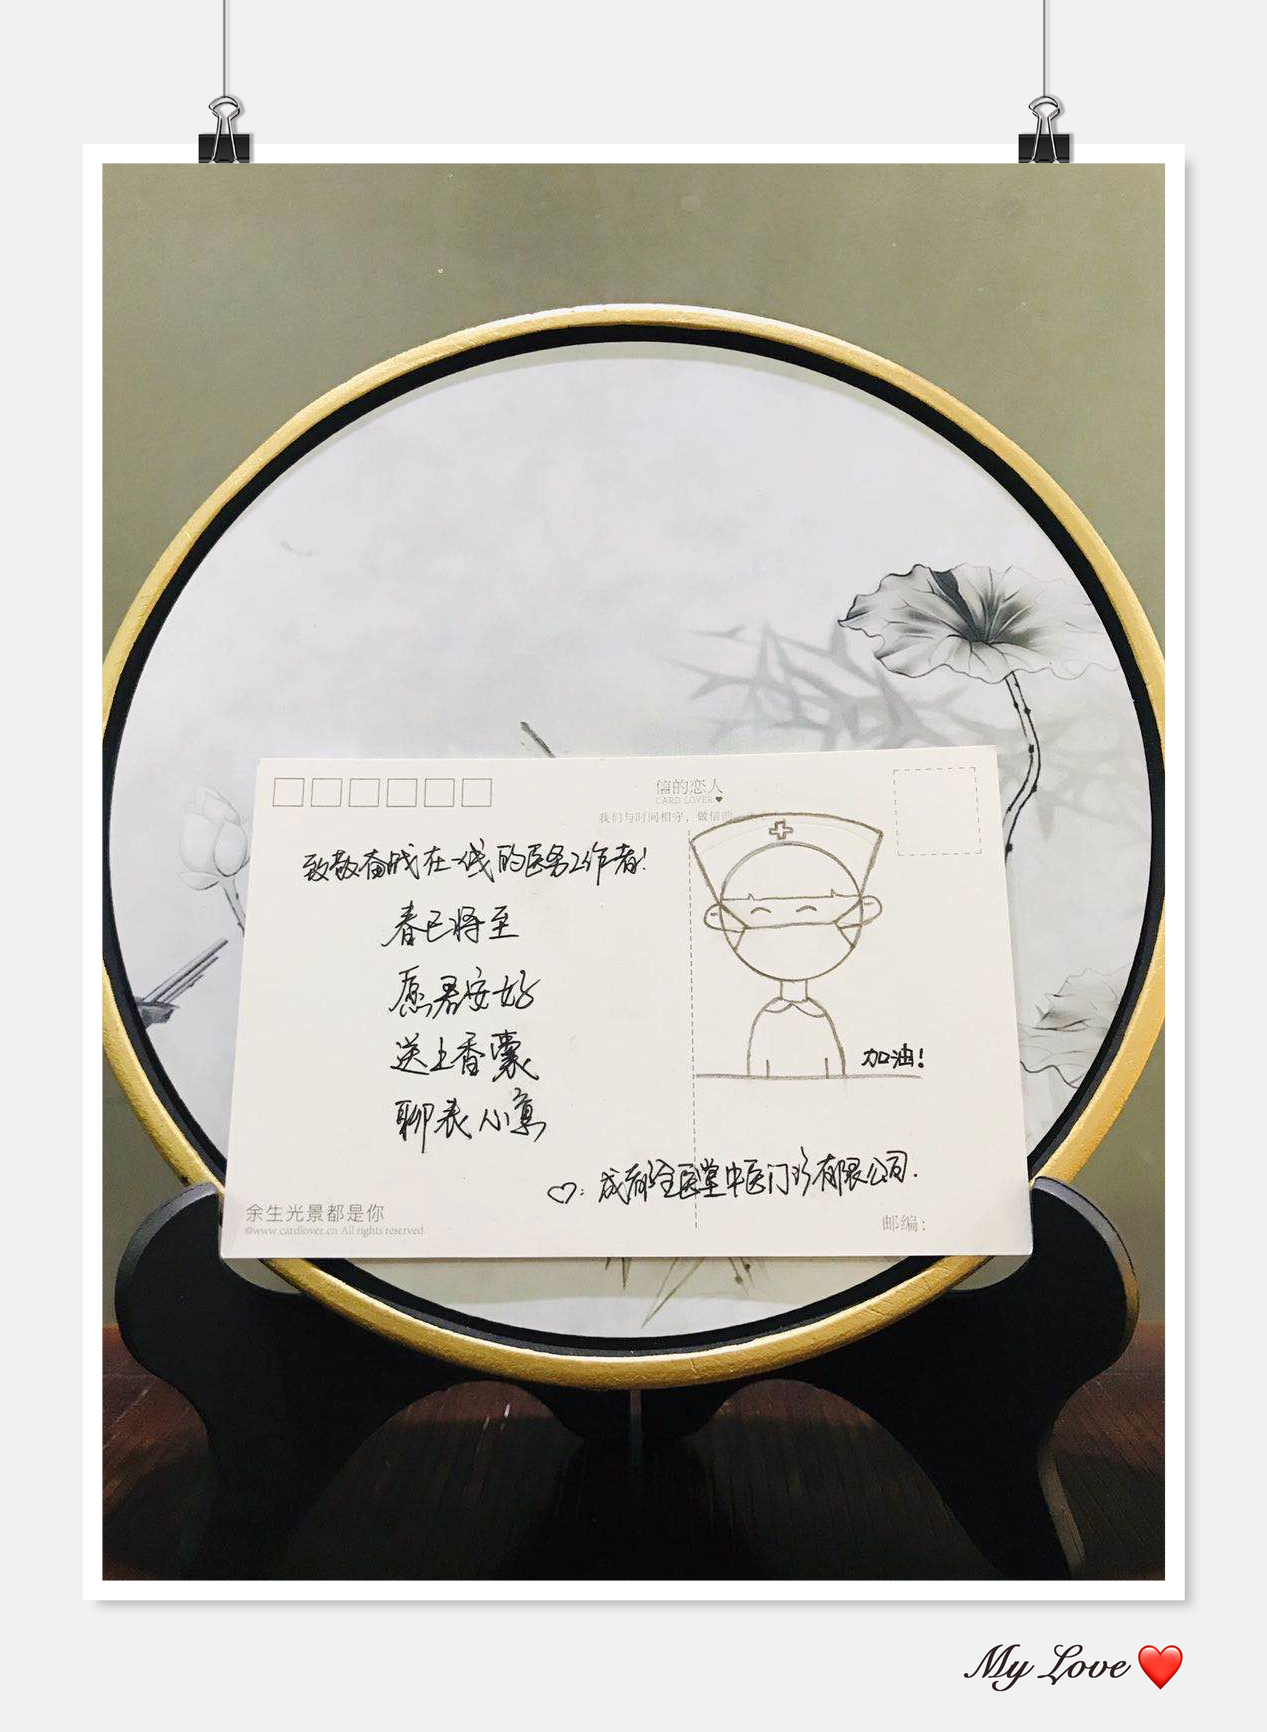 信的恋人
CARD LOVER
我们与时间相守，做信的
致敬奋战在一线的医务工作者！
春已将至
愿君安好
送上香囊
聊表心意
加油！
♡：成都全医堂中医门诊有限公司.
余生光景都是你
©www.cardlover.cn All rights reserved.
邮编：
My Love ❤️